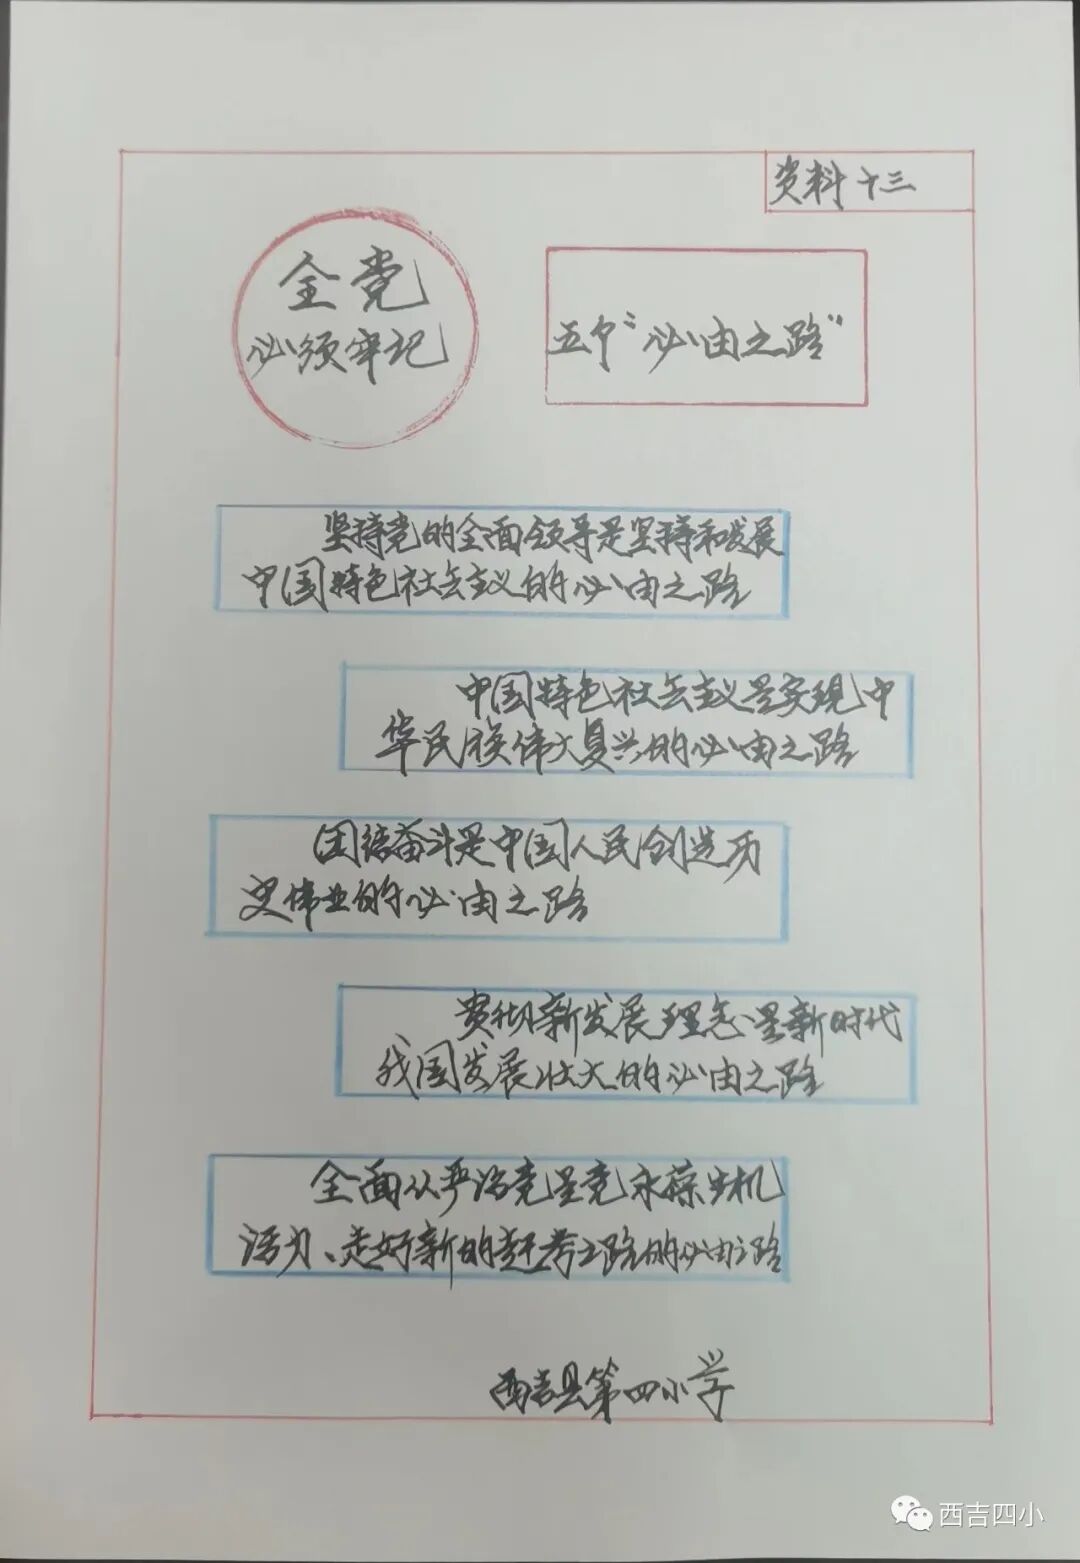 资料十三
全党
必须牢记
五个“必由之路”
坚持党的全面领导是坚持和发展
中国特色社会主义的必由之路
中国特色社会主义是实现中
华民族伟大复兴的必由之路
团结奋斗是中国人民创造历
史伟业的必由之路
贯彻新发展理念是新时代
我国发展壮大的必由之路
全面从严治党是党永葆生机
活力、走好新的赶考之路的必由之路
西吉县第四小学
西吉四小